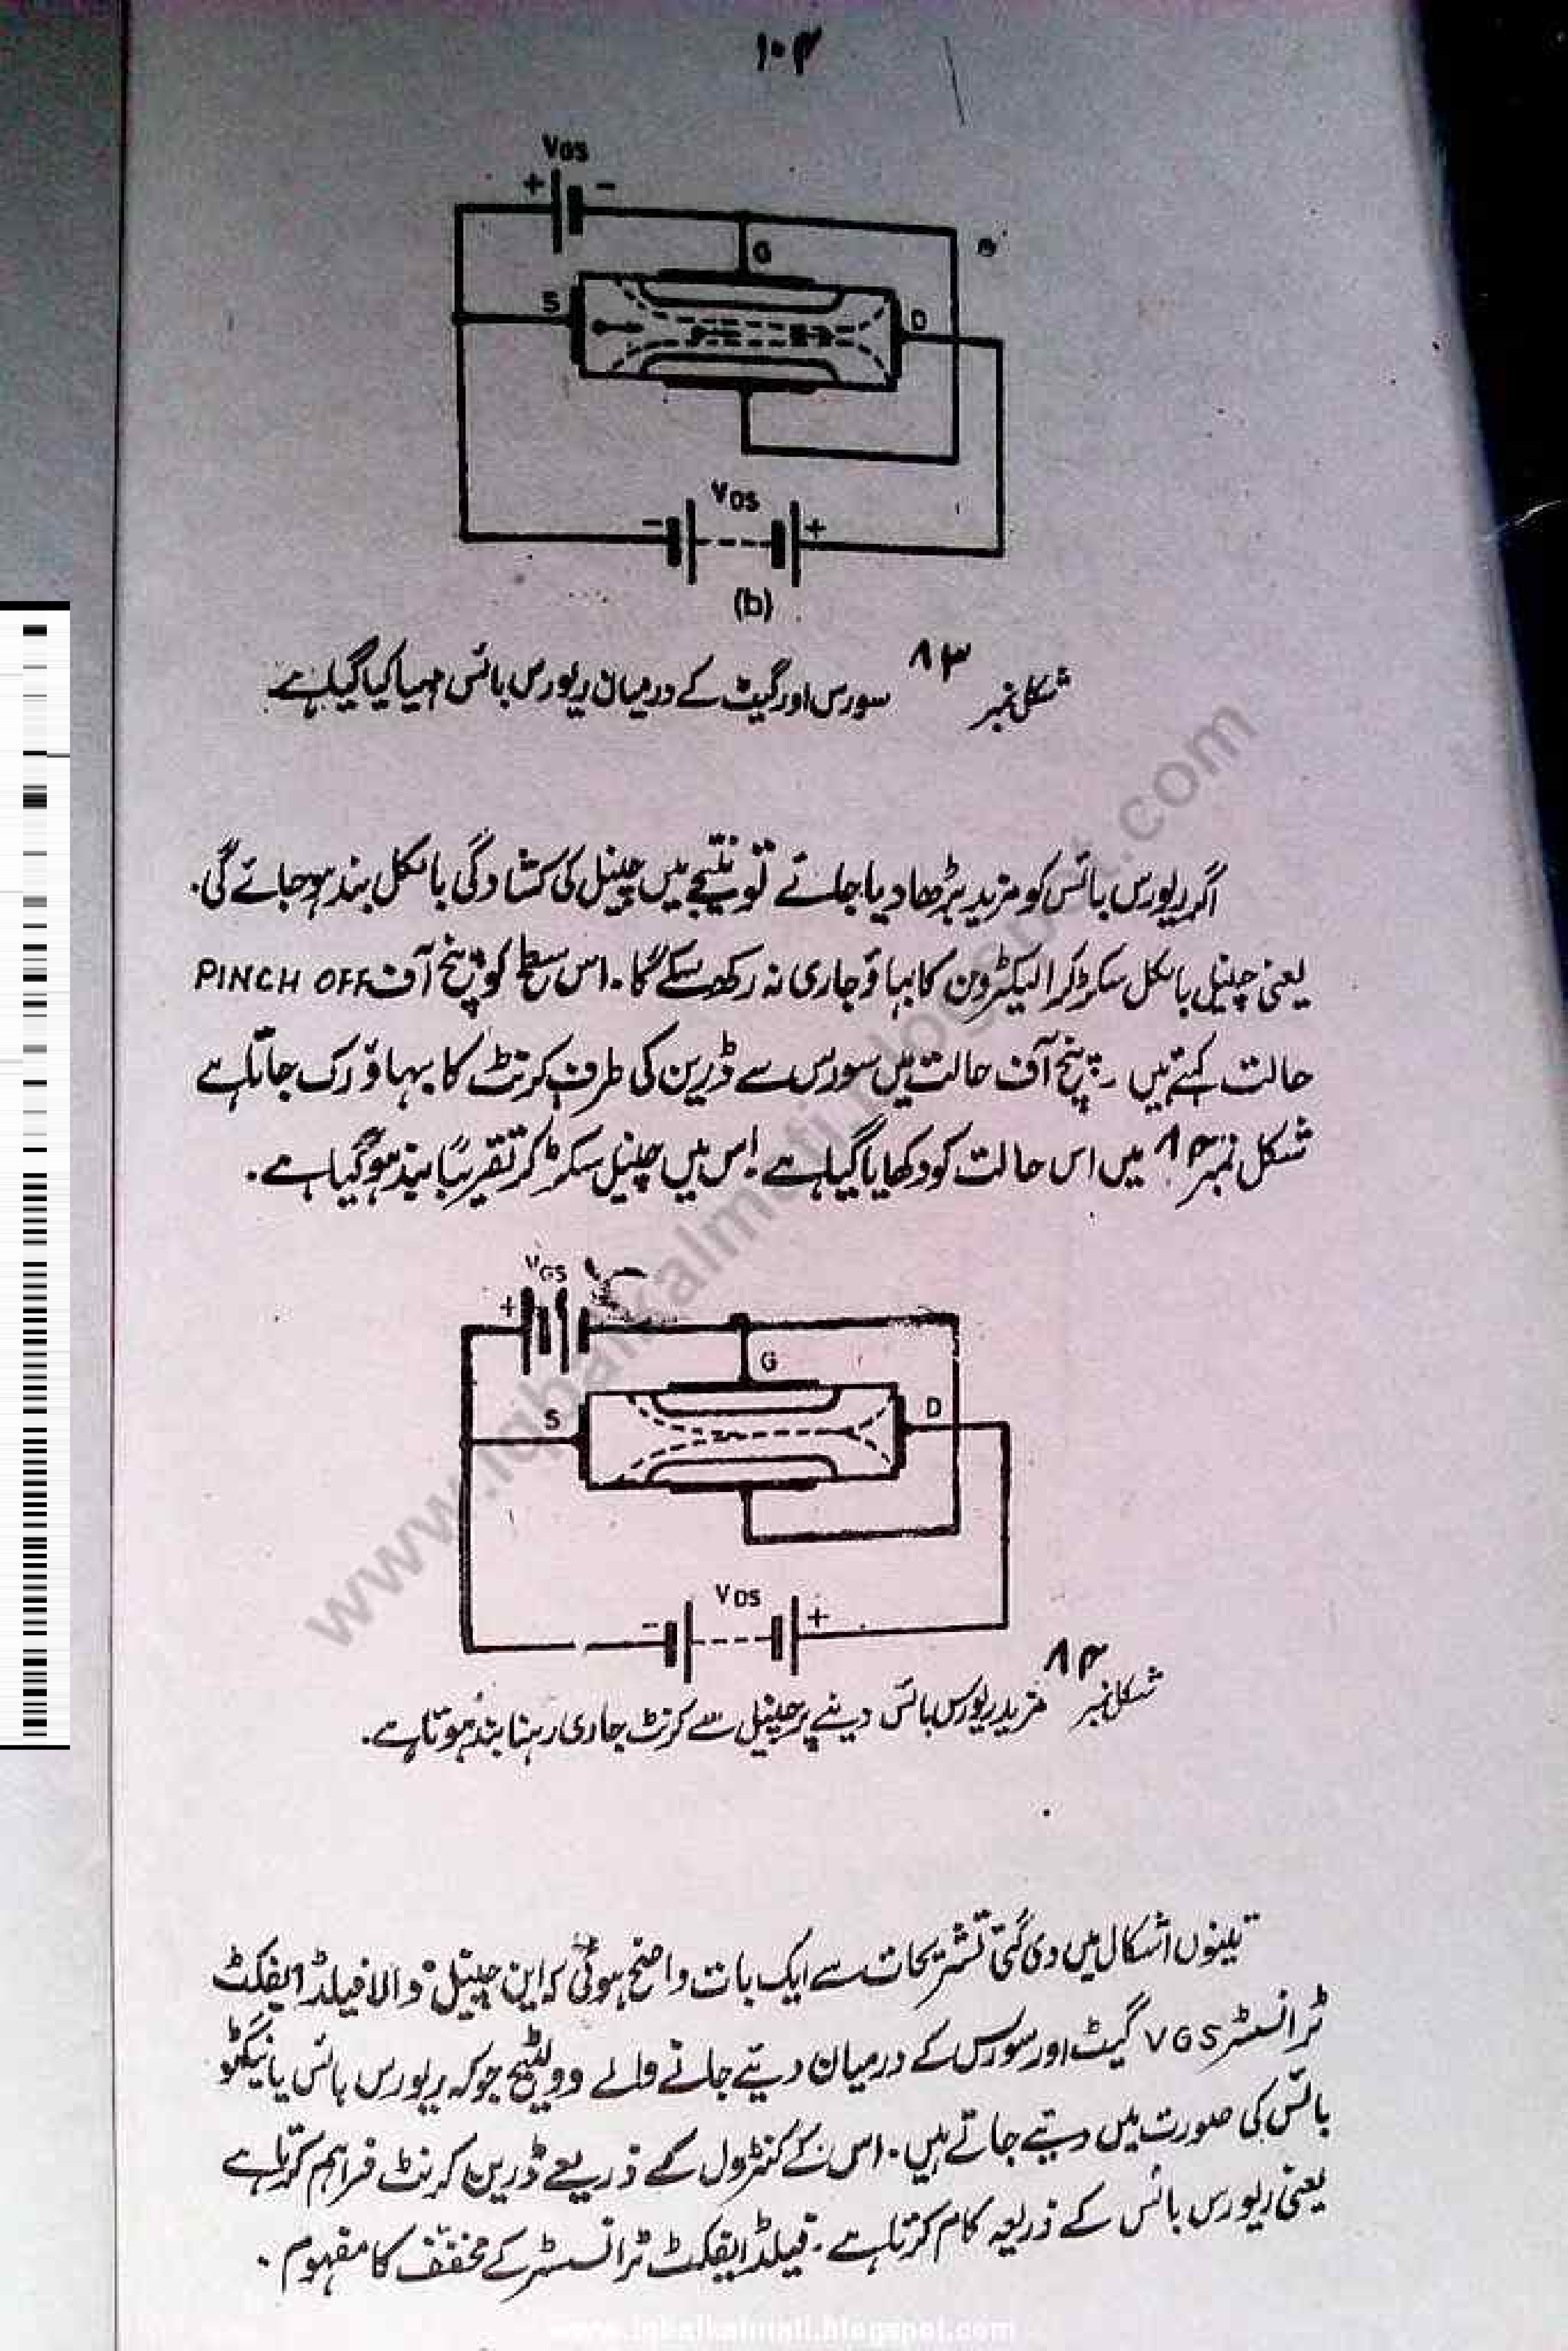 ۱۰۴
VGS
+ −
G
S
D
VDS
− +
(b)
شکل نمبر ۸۳ سورس اور گیٹ کے درمیان ریورس بائس مہیا کیا گیا ہے۔
اگر ریورس بائس کو مزید بڑھا دیا جائے تو نتیجے میں چینل کی کشادگی بالکل بند ہو جائے گی۔
یعنی چینل بالکل سکڑ کر الیکٹرون کا بہاؤ جاری نہ رکھ سکے گا۔ اس سطح کو پنچ آف PINCH OFF
حالت کہتے ہیں ۔ پنچ آف حالت میں سورس سے ڈرین کی طرف کرنٹ کا بہاؤ رک جاتا ہے
شکل نمبر ۸۴ میں اس حالت کو دکھایا گیا ہے اس میں چینل سکڑ کر تقریباً بند ہو گیا ہے۔
VGS
+
G
S
D
VDS
− +
شکل نمبر ۸۴ مزید ریورس بائس دینے پر چینل سے کرنٹ جاری رہنا بند ہوتا ہے۔
تینوں اشکال میں دی گئی تشریحات سے ایک بات واضح ہوئی کہ این چینل والا فیلڈ ایفکٹ
ٹرانسسٹر VGS گیٹ اور سورس کے درمیان دیئے جانے والے وولٹیج جو کہ ریورس بائس یا نیگٹو
بائس کی صورت میں دیئے جاتے ہیں۔ اس کے کنٹرول کے ذریعے ڈرین کرنٹ فراہم کرتا ہے
یعنی ریورس بائس کے ذریعہ کام کرتا ہے۔ فیلڈ ایفکٹ ٹرانسسٹر کے مخفف کا مفہوم ۔
www.iqbalkalmati.blogspot.com
www.iqbalkalmati.blogspot.com